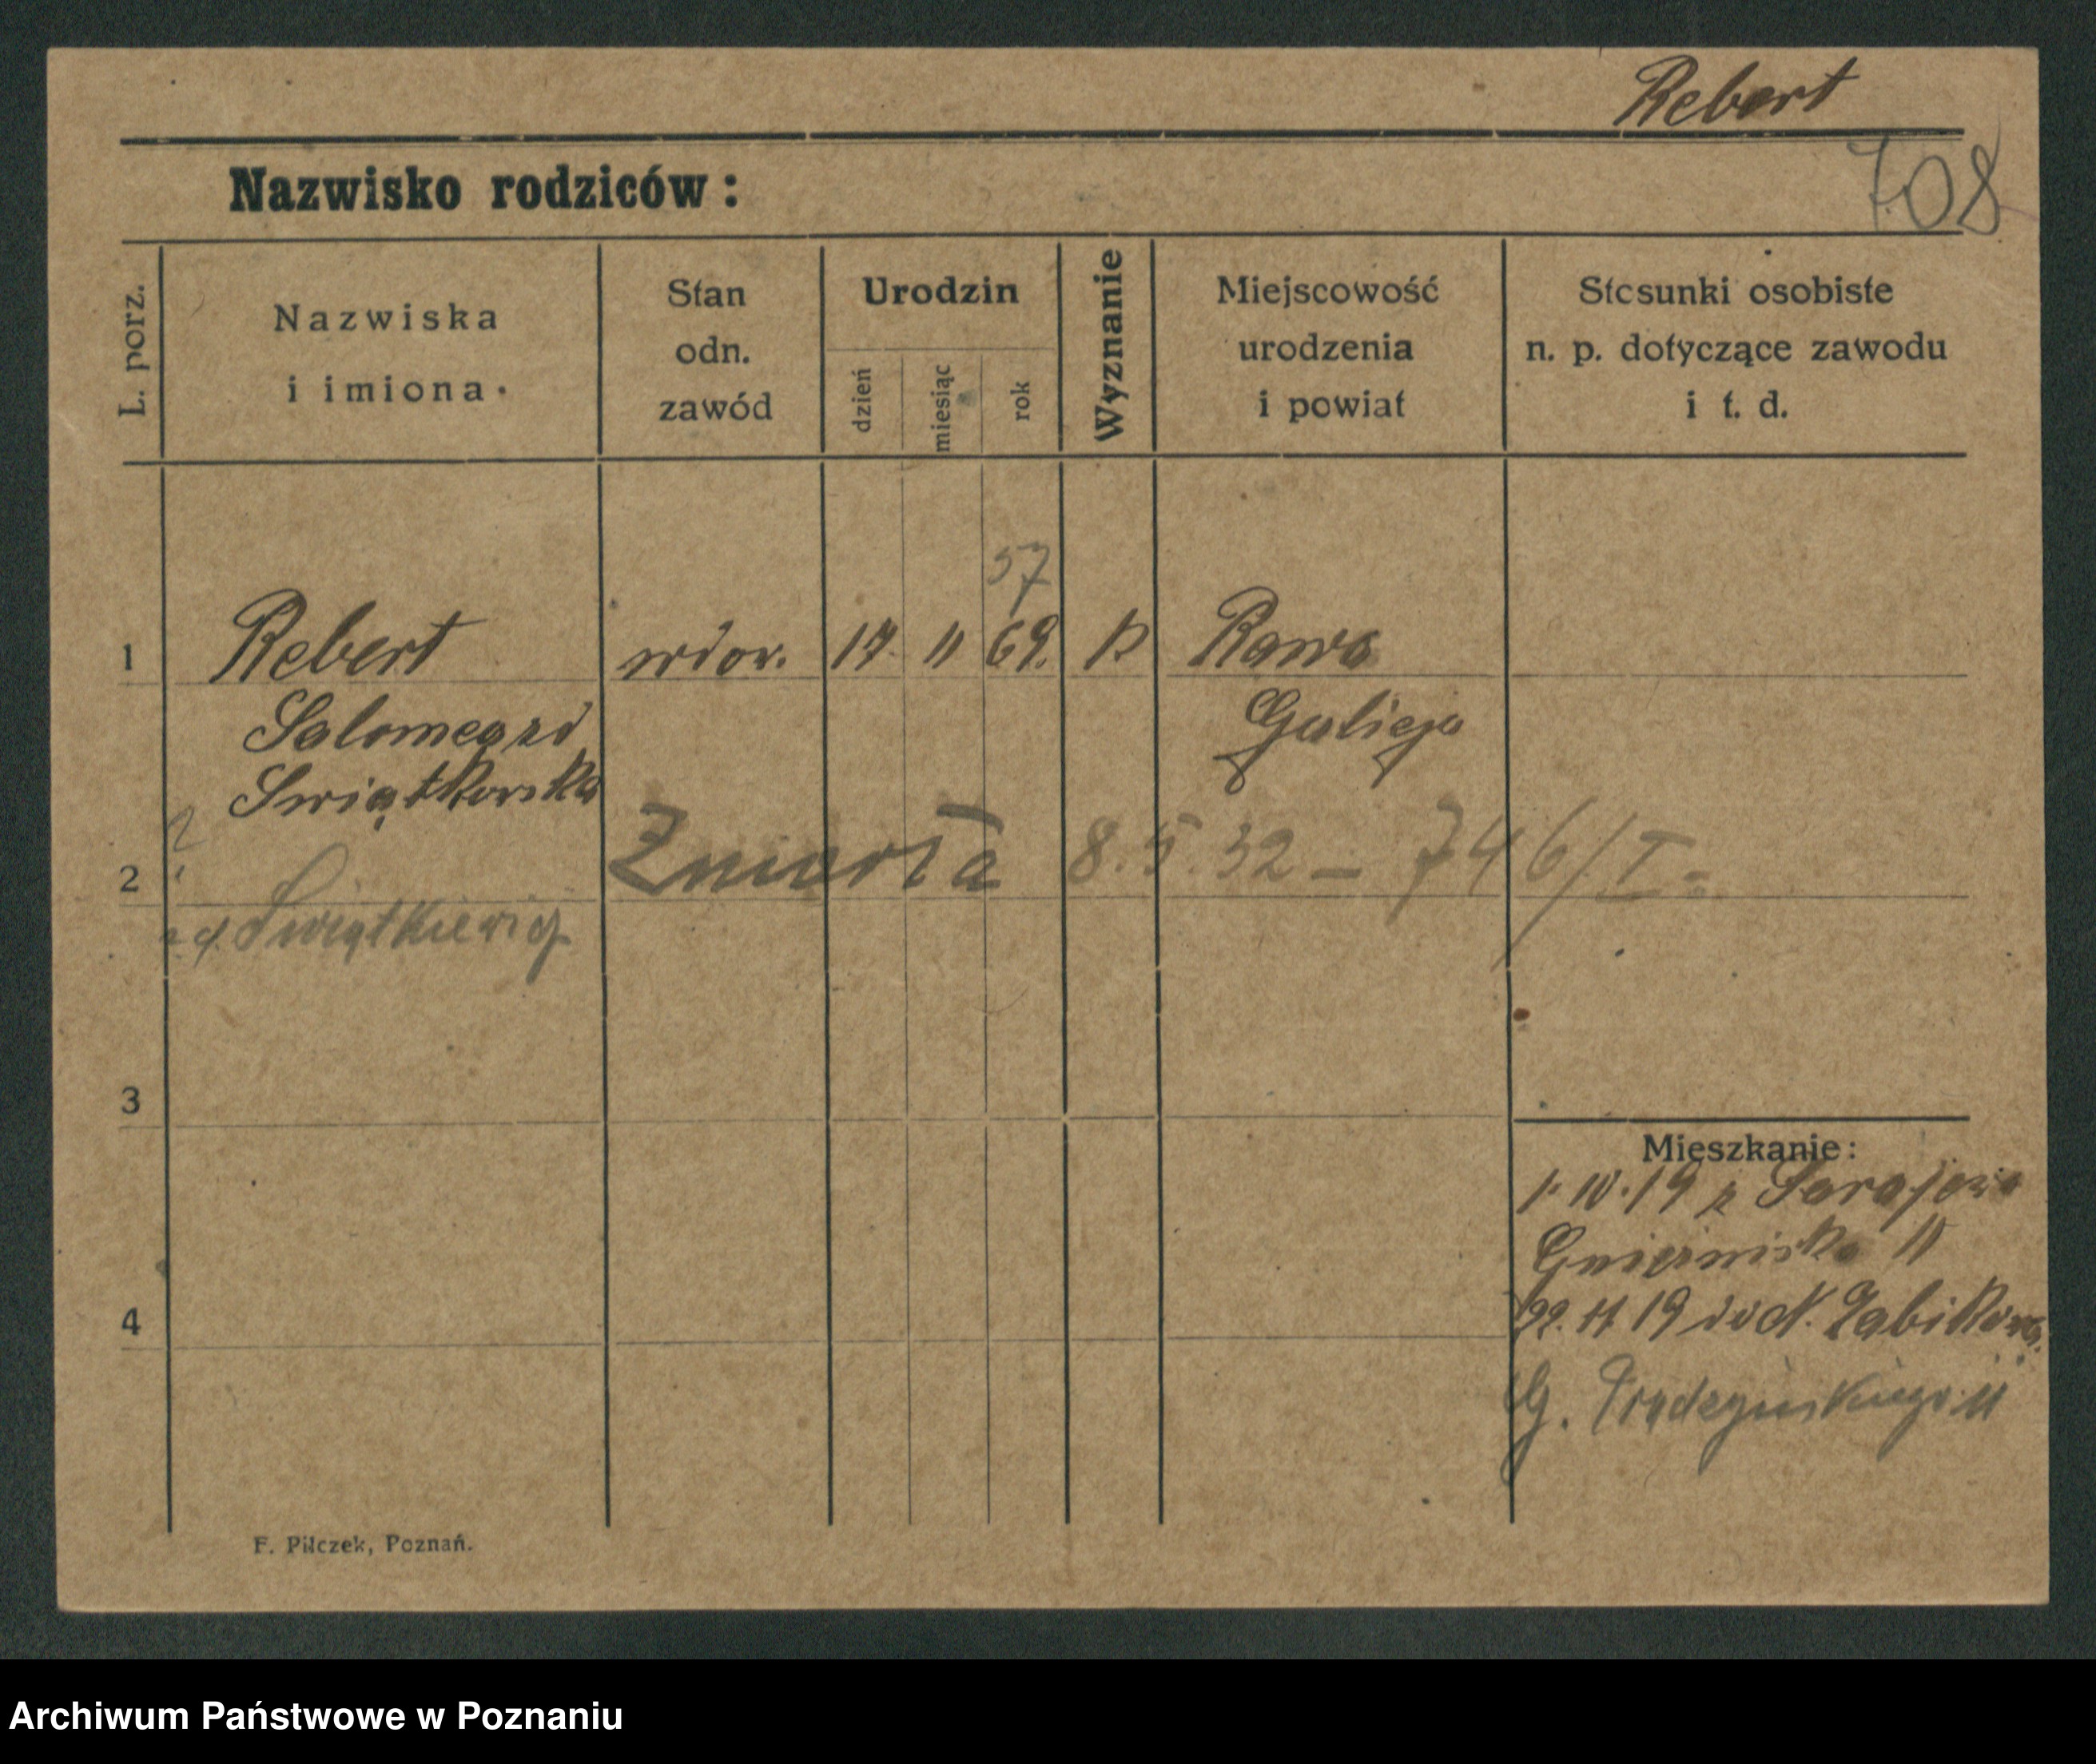 Rebert
708
Nazwisko rodziców:
L. porz.
Nazwiska
i imiona.
Stan
odn.
zawód
Urodzin
dzień
miesiąc
rok
Wyznanie
Miejscowość
urodzenia
i powiat
Stosunki osobiste
n. p. dotyczące zawodu
i t. d.
57
1 Rebert wdow. 17. 11 69. Rawa
Salomea zd Galicja
Swiątkowska
2 Zmarła 8.5.32 – 746/I
Swiątkiewicz
3
Mieszkanie:
19 z Sarajewa
Gnieźnińska
4
22. 11 19 Żabikowo
G. Prądzyńskiego 11
F. Pilczek, Poznań.
Archiwum Państwowe w Poznaniu